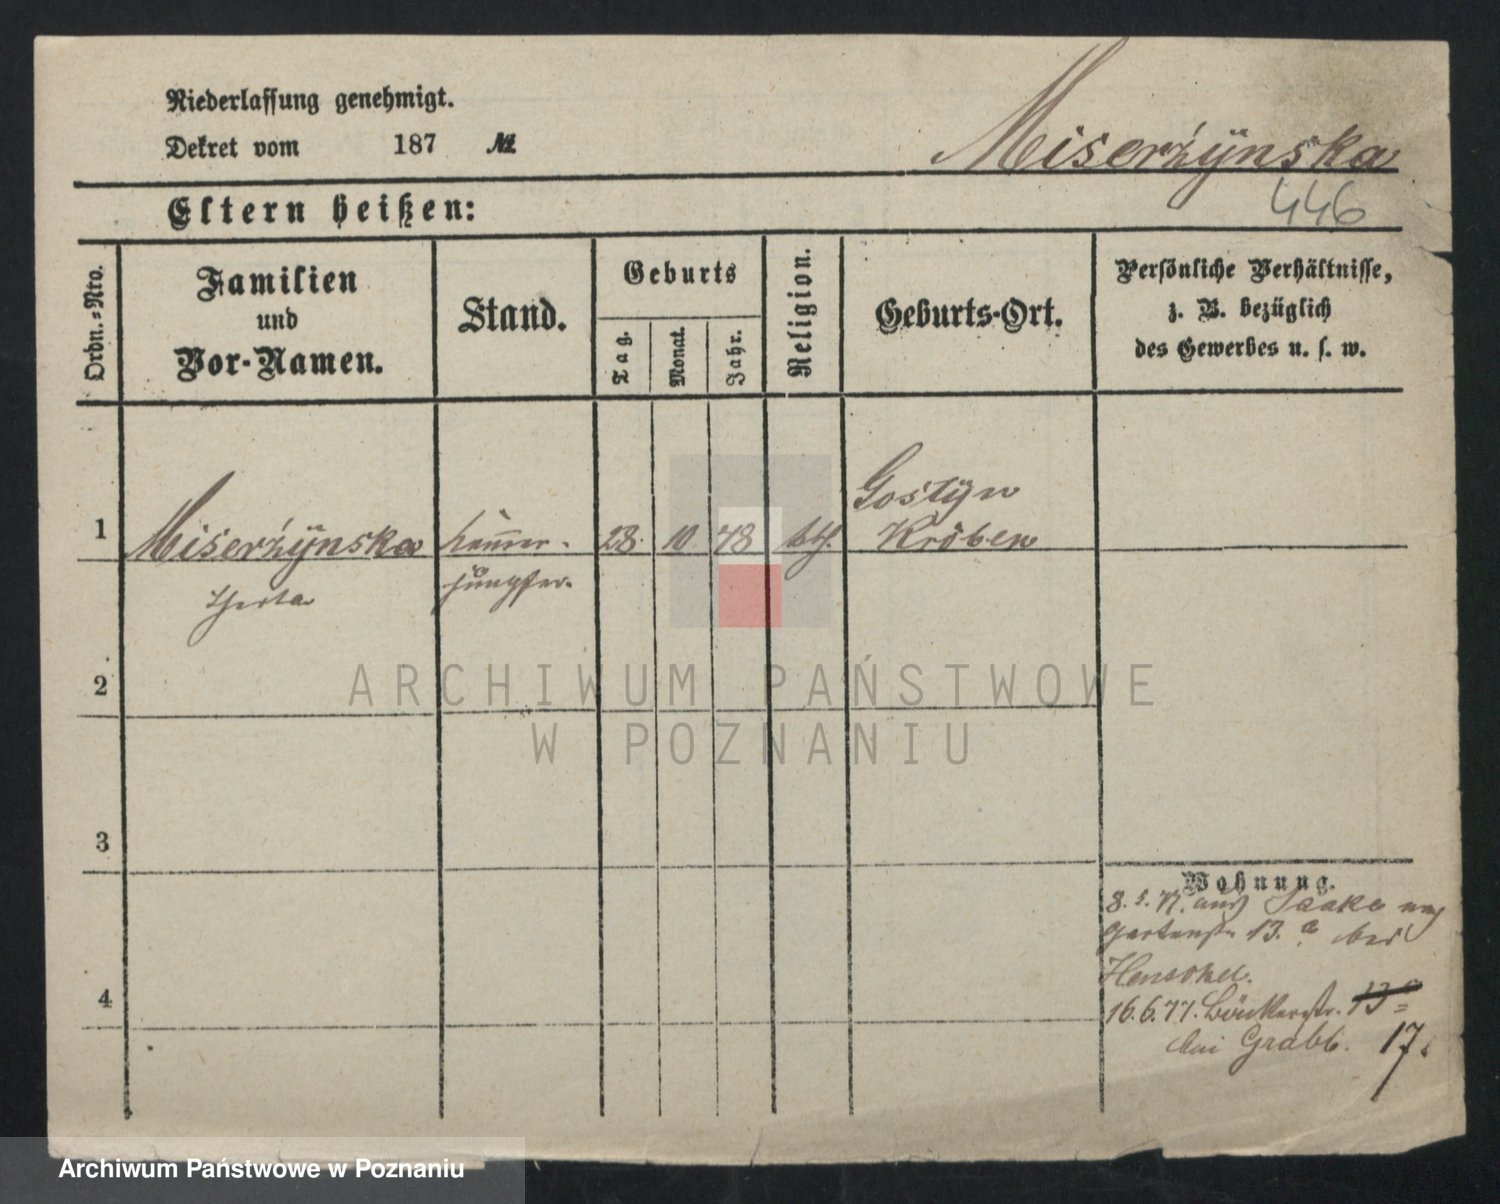 Niederlassung genehmigt.
Dekret vom 187 №
Miserżÿnska
446
Eltern heißen:
Ordn.=Nro.
Familien
und
Vor-Namen.
Stand.
Geburts
Tag.
Monat.
Jahr.
Religion.
Geburts-Ort.
Persönliche Verhältnisse,
z. B. bezüglich
des Gewerbes u. s. w.
1
Miserżÿnska
28. 10 48 kth.
Gostÿn
Kröben
jungfer.
2
3
4
Wohnung.
8. 5. 77. aus
Gartenstr. 13.a bei
Henschel.
16.6.77. 13a
bei Grabb. 17.
ARCHIWUM PAŃSTWOWE
W POZNANIU
Archiwum Państwowe w Poznaniu